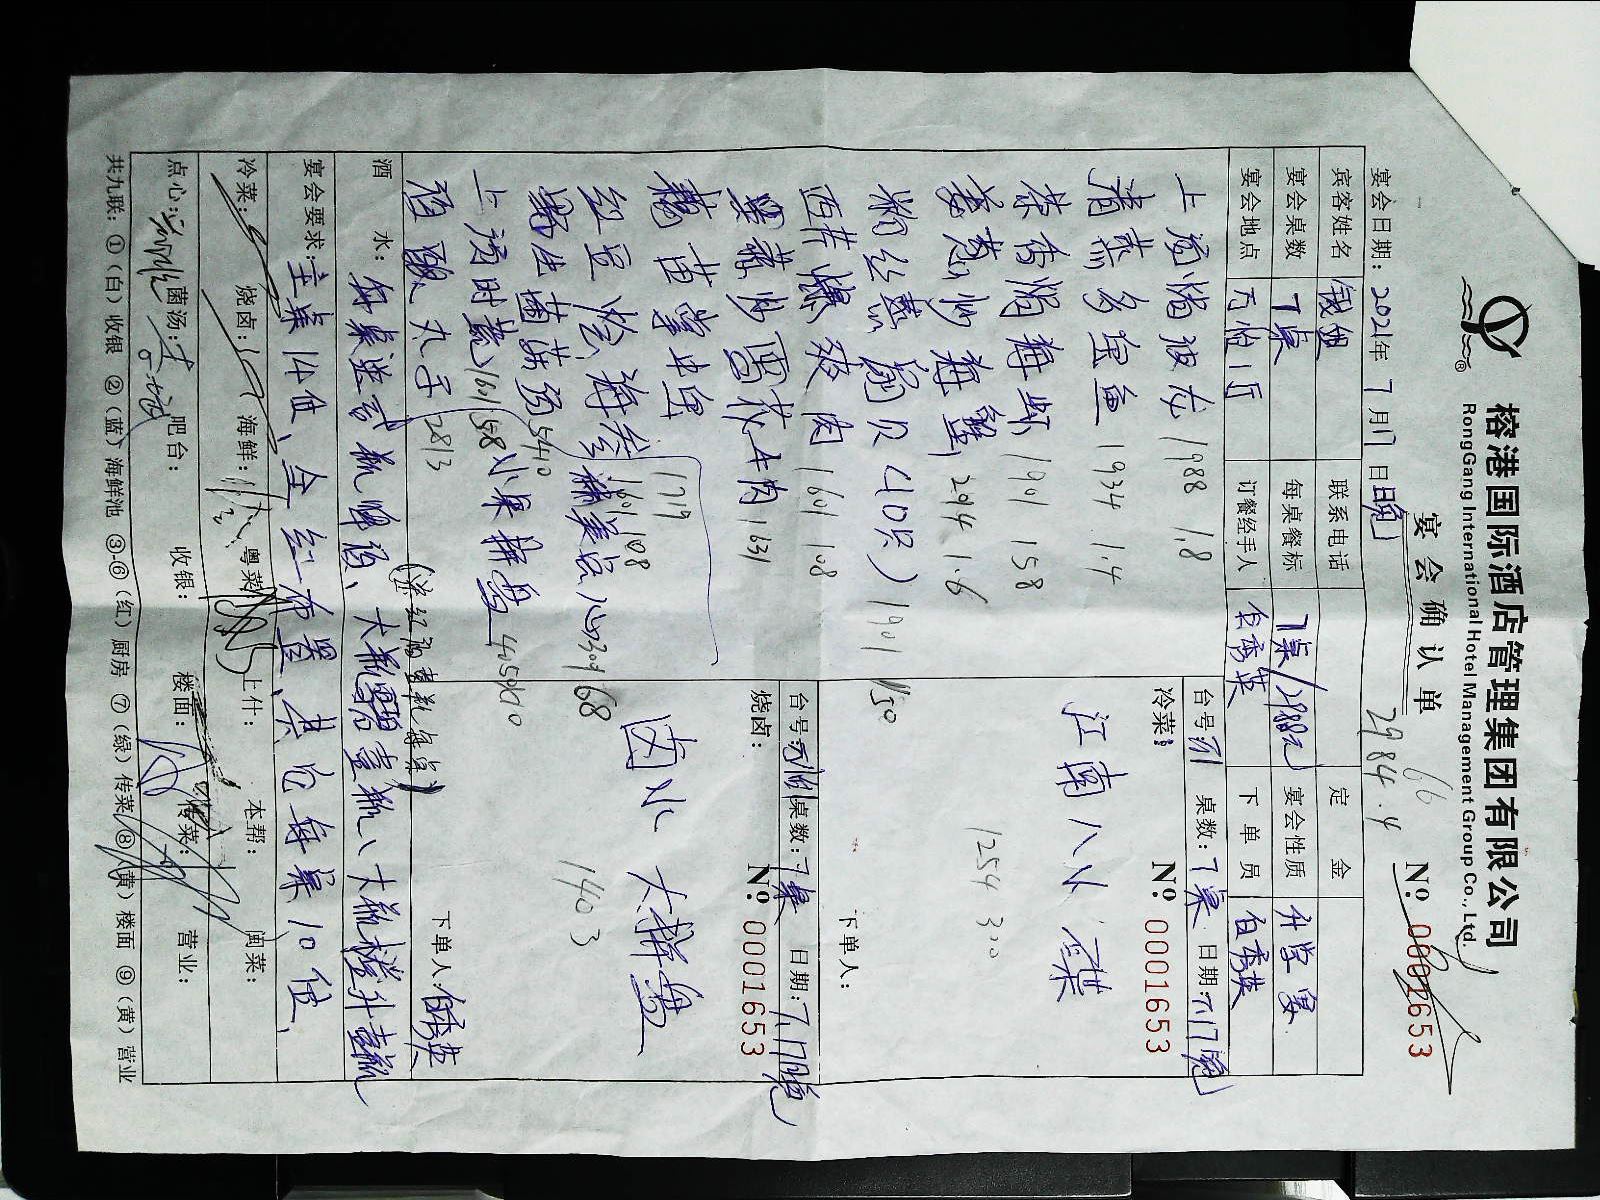 榕港国际酒店管理集团有限公司
RongGang International Hotel Management Group Co., Ltd.
®
宴会确认单
66
2984.4
№ 0001653
宴会日期: 2021年 7月17日晚
宾客姓名 钱姐 联系电话 定金
宴会桌数 7桌 每桌餐标 7桌/2988元 宴会性质 升学宴
宴会地点 万怡1厅 订餐经手人 白秀英 下单员 白秀英
上汤焗波龙 1988 1.8
清蒸多宝鱼 1934 1.4
焗海虾 1901 158
姜葱炒海蟹 2914 1.6
粉丝蒸扇贝(40只) 1901 150
西芹爆 肉 1601 108
黑蒜炒雪花牛肉 1631
1719
红豆烩海参 1601 108
精美点心 68
野生菌菇汤 540
上汤时蔬 1601 58
水果拼盘
丸子 2813
台号: 桌数: 7桌 日期: 7.17晚
冷菜:
№ 0001653
江南八小碟
1254 300
下单人:
台号: 桌数: 7桌 日期: 7.17晚
烧卤:
№ 0001653
卤水大拼盘
1403
下单人: 白秀英
酒水: 每桌送 大瓶雪碧壹瓶、大瓶橙升壹瓶
宴会要求: 主桌14位、全红布置、其它每桌10位、
冷菜: 烧卤: 海鲜: 粤菜: 上什: 本帮: 闽菜:
点心: 菌汤: 吧台: 收银: 楼面: 传菜: 营业:
共九联: ①(白)收银 ②(蓝)海鲜池 ③-⑥(红)厨房 ⑦(绿)传菜 ⑧(黄)楼面 ⑨(黄)营业